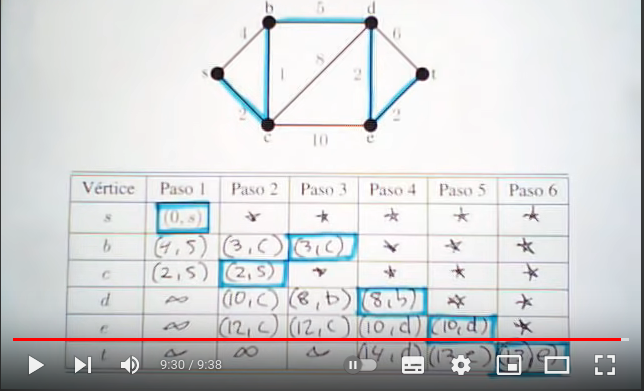 b 5 d
4 8 6
s 1 2 t
2 2
c e
10
Vértice Paso 1 Paso 2 Paso 3 Paso 4 Paso 5 Paso 6
s (0, s) * * * * *
b (4, s) (3, c) (3, c) * * *
c (2, s) (2, s) * * * *
d ∞ (10, c) (8, b) (8, b) * *
e ∞ (12, c) (12, c) (10, d) (10, d) *
t ∞ ∞ ∞ (14, d)
9:30 / 9:38